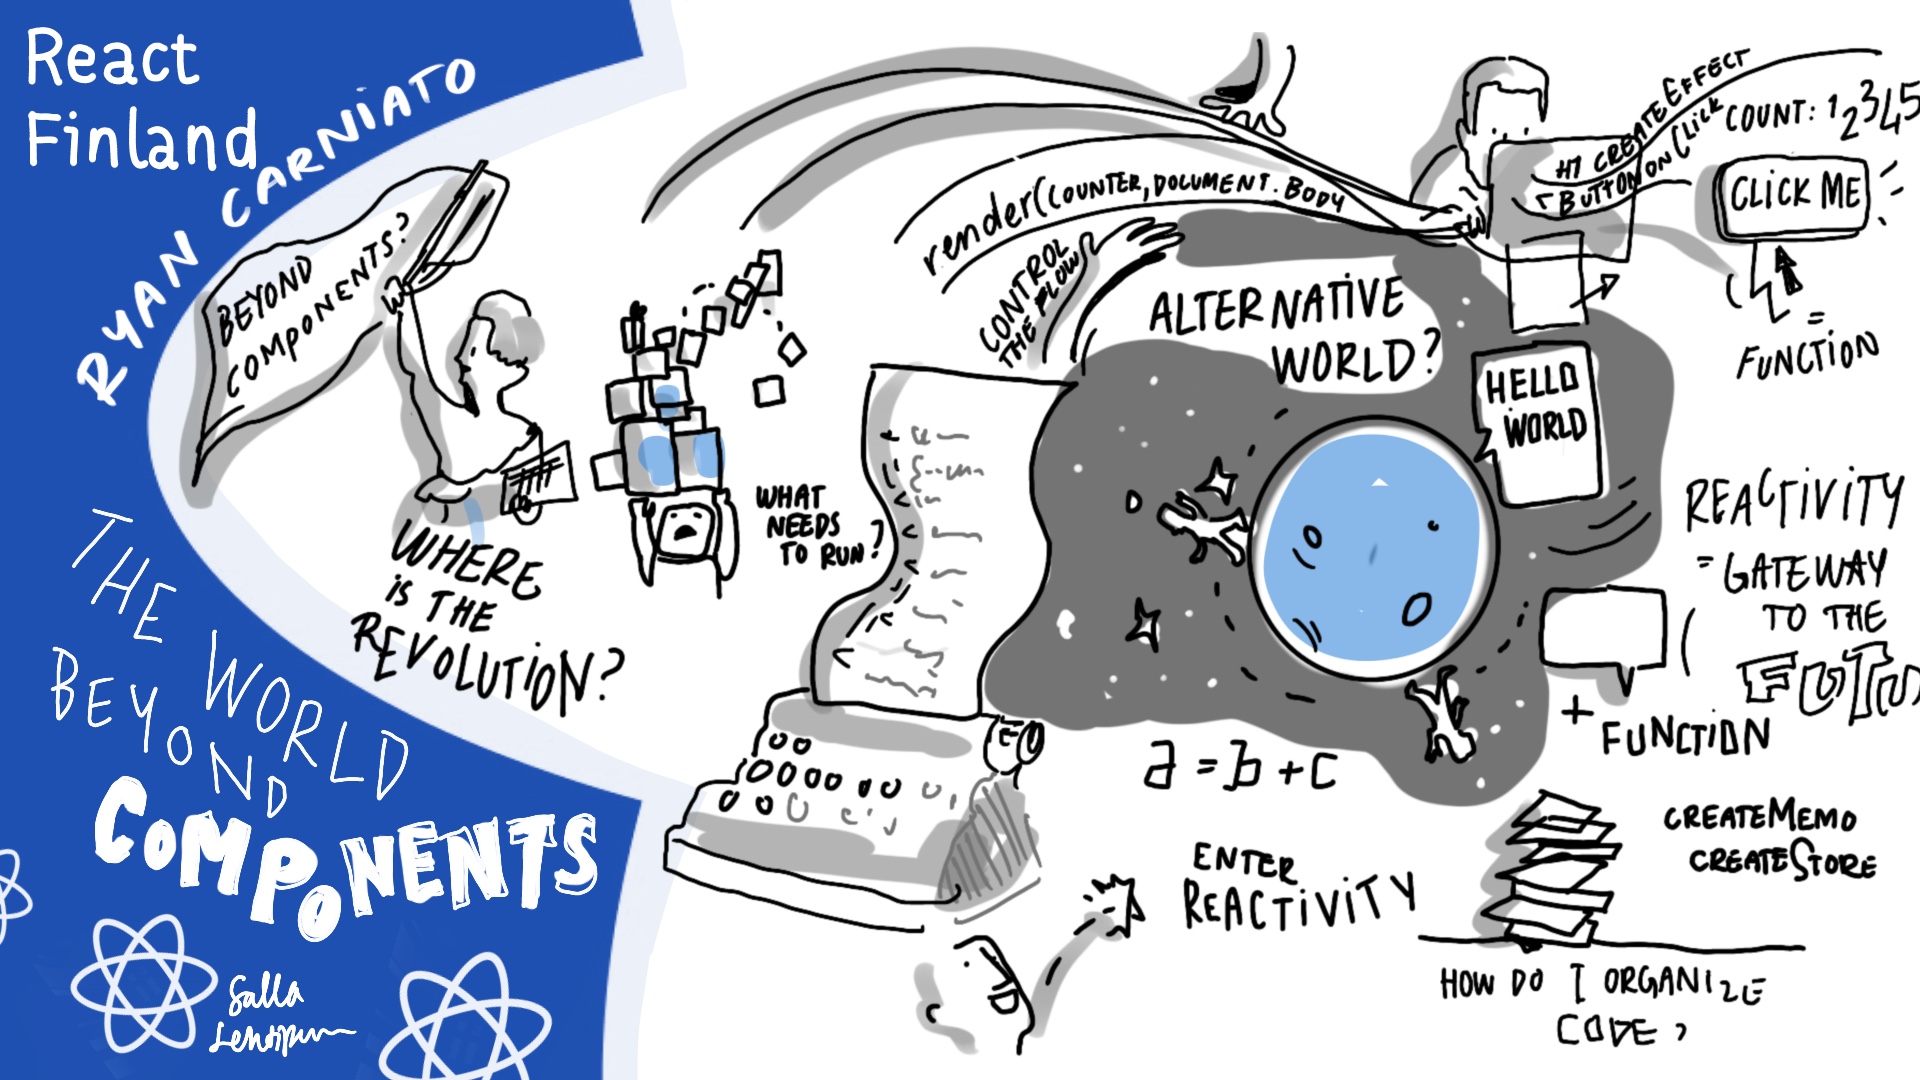 React
Finland
RYAN CARNIATO
THE WORLD
BEYOND
COMPONENTS
Salla
BEYOND
COMPONENTS?
WHERE
IS THE
REVOLUTION?
WHAT
NEEDS
TO RUN?
render(COUNTER, DOCUMENT.BODY
CONTROL
THE FLOW
ALTERNATIVE
WORLD?
CREATE EFFECT
BUTTON ON CLICK
COUNT: 12345
CLICK ME
=
FUNCTION
HELLO
WORLD
REACTIVITY
= GATEWAY
TO THE
+ FUNCTION
a = b + c
ENTER
REACTIVITY
CREATEMEMO
CREATESTORE
HOW DO I ORGANIZE
CODE?